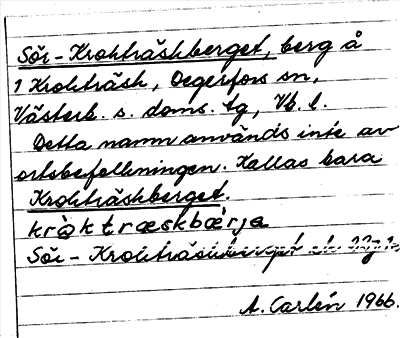 Sör-Krokträskberget, berg å
1 Krokträsk, Degerfors sn,
Västerb. s. doms. tg, Vb. l.
Detta namn används inte av
ortsbefolkningen. Kallas bara
Krokträskberget.
kròktræskbærja
Sör-Krokträskberget
A. Carlén 1966.